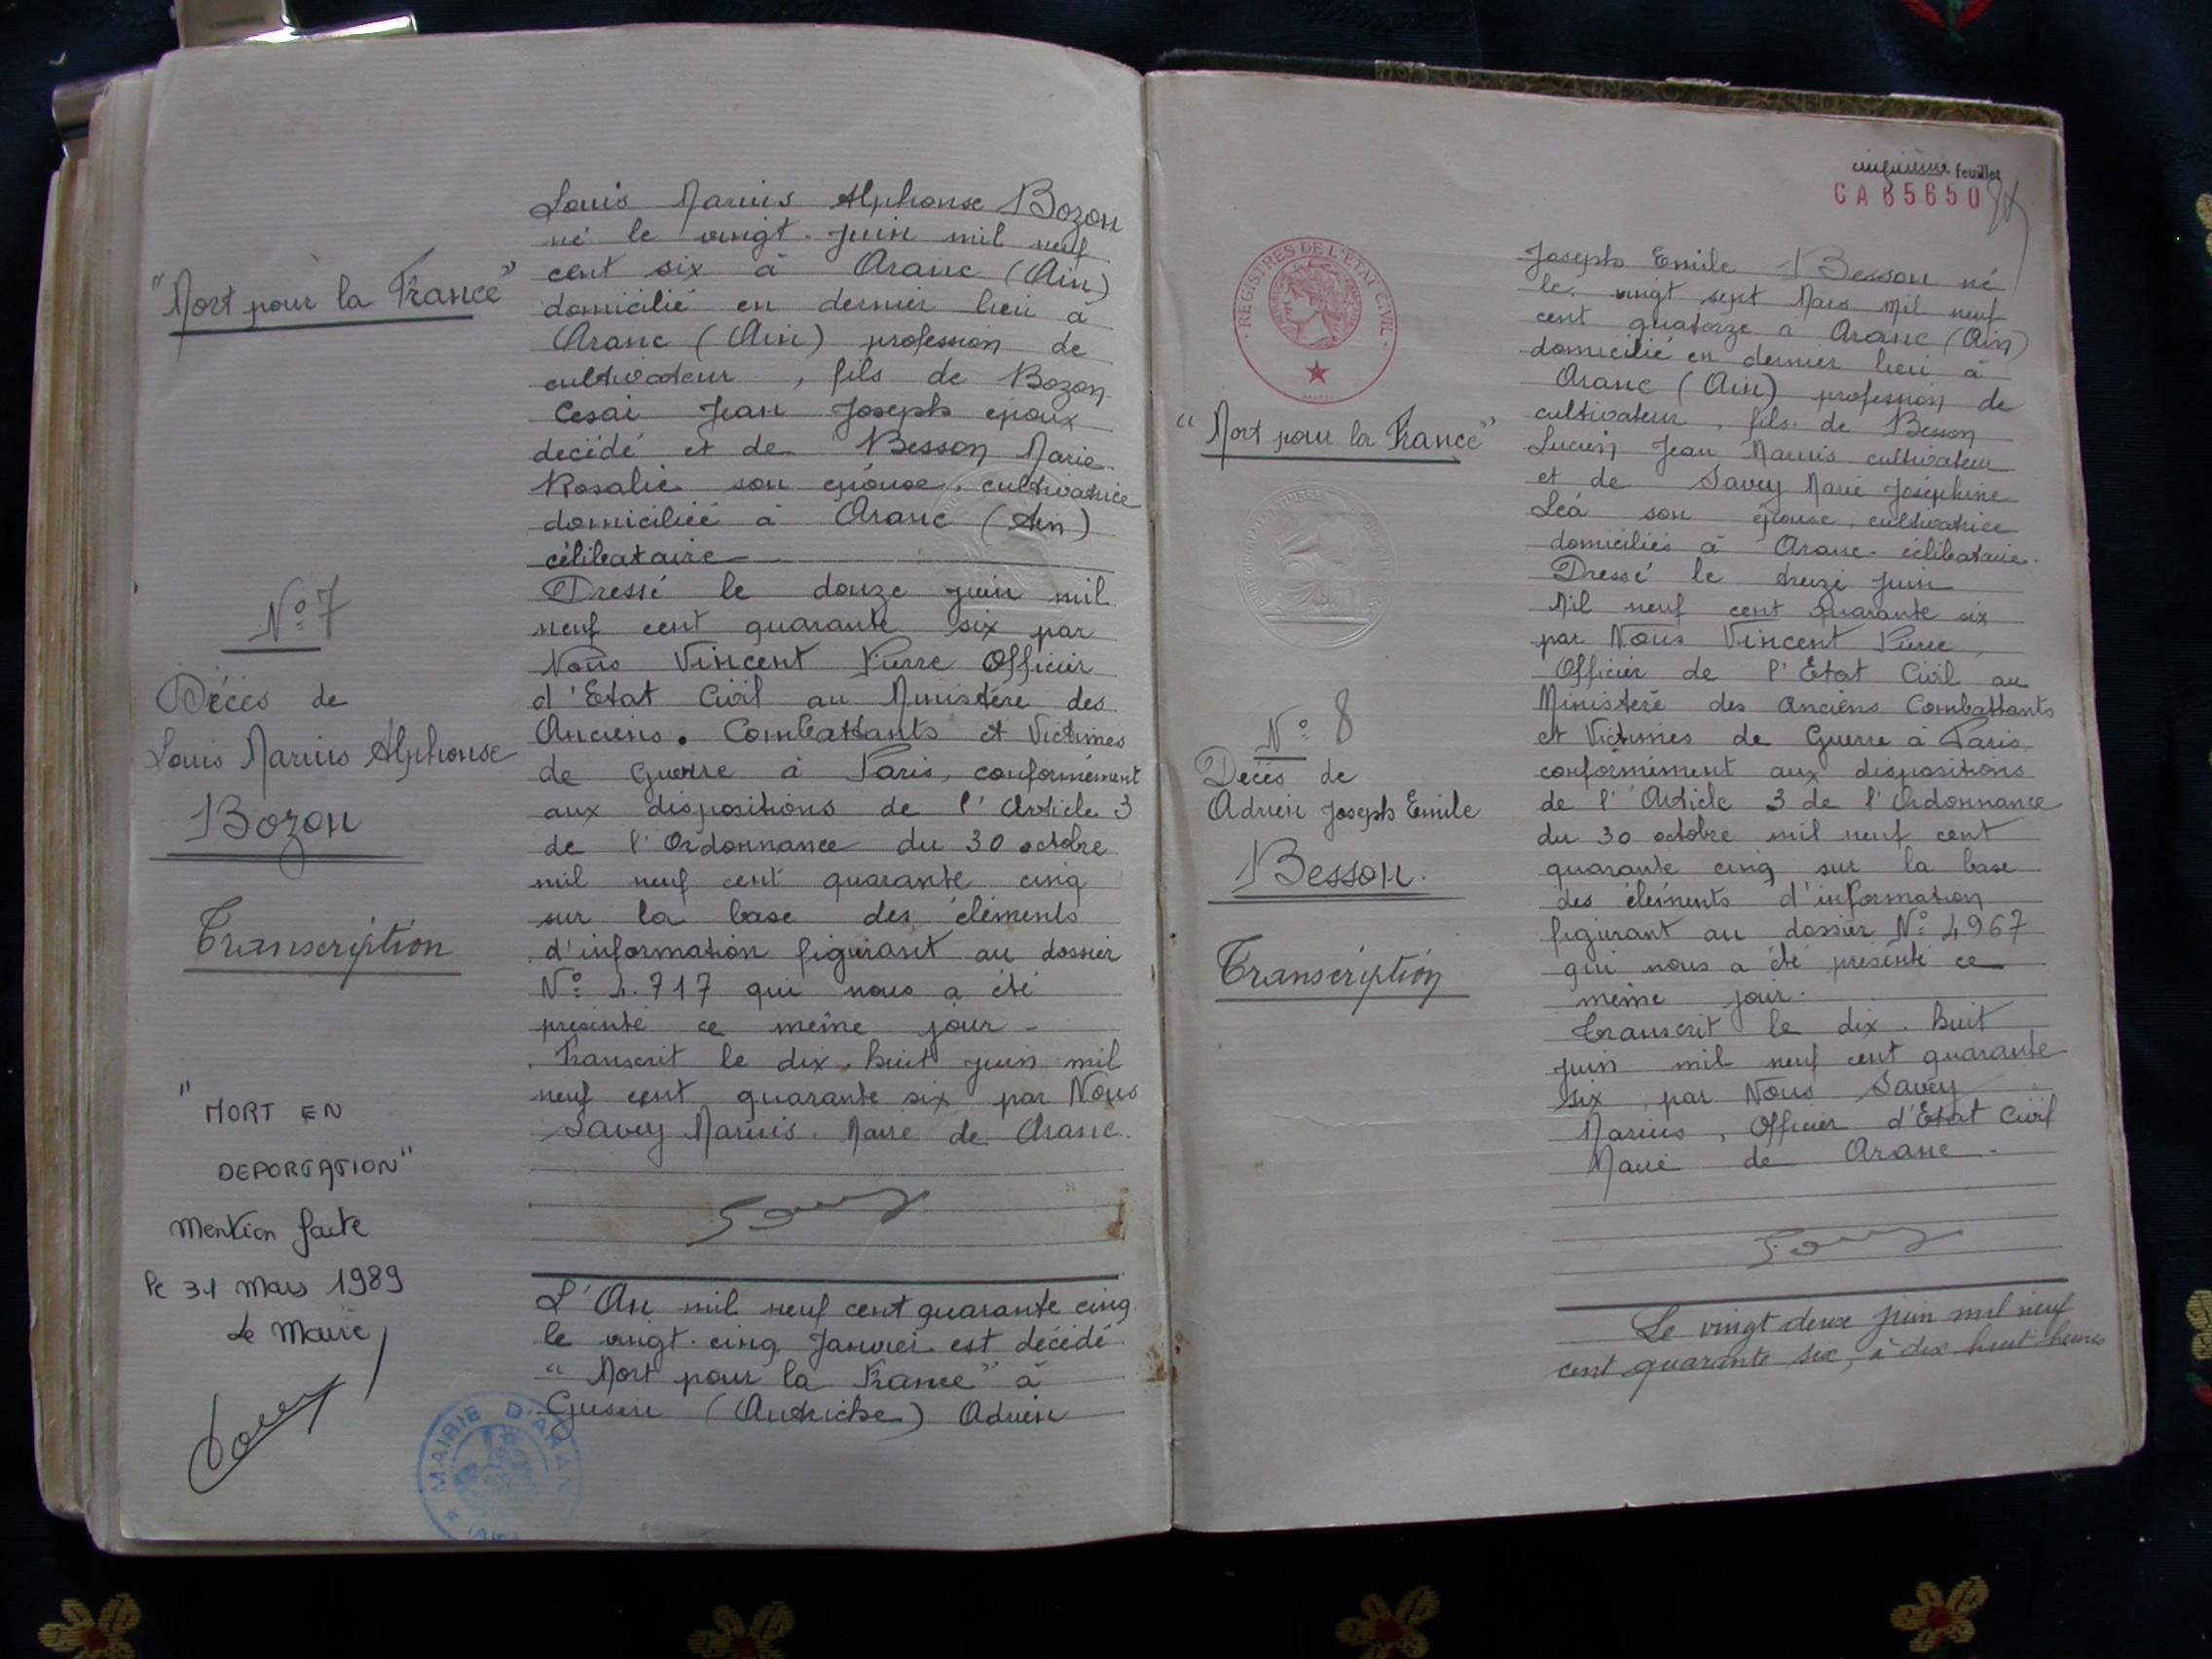 "Mort pour la France"
N° 7
Décès de
Louis Marius Alphonse
Bozon
Transcription
"MORT EN
DEPORTATION"
Mention faite
le 31 Mars 1989
Le Maire
Louis Marius Alphonse Bozon
né le vingt juin mil neuf
cent six à Aranc (Ain)
domicilié en dernier lieu à
Aranc (Ain) profession de
cultivateur, fils de Bozon
Cesai Jean Joseph époux
décédé et de Besson Marie
Rosalie son épouse, cultivatrice
domiciliée à Aranc (Ain)
célibataire
Dressé le douze juin mil
neuf cent quarante six par
Nous Vincent Pierre Officier
d'Etat Civil au Ministère des
Anciens Combattants et Victimes
de Guerre à Paris, conformément
aux dispositions de l'Article 3
de l'Ordonnance du 30 octobre
mil neuf cent quarante cinq
sur la base des éléments
d'information figurant au dossier
N° 4.717 qui nous a été
présenté ce même jour -
Transcrit le dix-huit juin mil
neuf cent quarante six par Nous
Savey Marius. Maire de Aranc.
Savey
L'An mil neuf cent quarante cinq
le vingt-cinq Janvier est décédé
"Mort pour la France" à
Gusen (Autriche) Adrien
MAIRIE D'ARANC
(AIN)
feuillet
CA 65650
REGISTRES DE L'ETAT CIVIL
"Mort pour la France"
N° 8
Décès de
Adrien Joseph Emile
Besson.
Transcription
Joseph Emile Besson né
le vingt sept Mars mil neuf
cent quatorze à Aranc (Ain)
domicilié en dernier lieu à
Aranc (Ain) profession de
cultivateur, fils de Besson
Lucien Jean Marius cultivateur
et de Savey Marie Joséphine
Léa son épouse, cultivatrice
domiciliés à Aranc - célibataire.
Dressé le treize juin
Mil neuf cent quarante six
par Nous Vincent Pierre,
Officier de l'Etat Civil au
Ministère des Anciens Combattants
et Victimes de Guerre à Paris,
conformément aux dispositions
de l'Article 3 de l'Ordonnance
du 30 octobre mil neuf cent
quarante cinq sur la base
des éléments d'information
figurant au dossier N° 4967
qui nous a été présenté ce
même jour.
Transcrit le dix-huit
juin mil neuf cent quarante
six, par Nous Savey
Marius, Officier d'Etat Civil
Maire de Aranc -
Savey
Le vingt deux juin mil neuf
cent quarante six, à dix huit heures